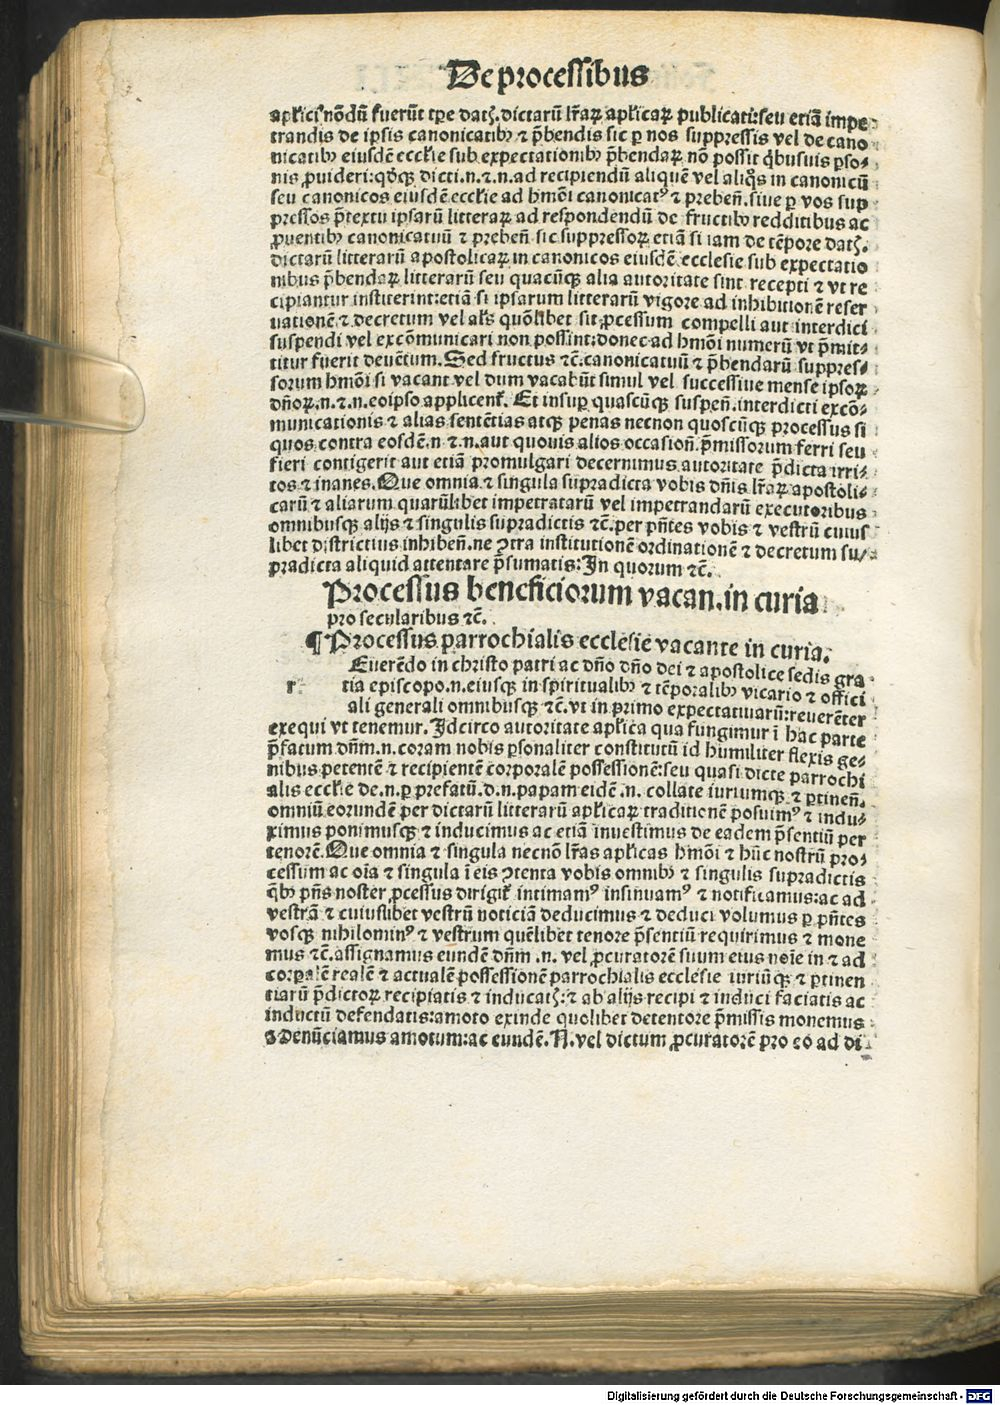 De processibus
aplici⁹ nōdū fuerūt tꝑe datꝭ. dictarū lr̄aꝝ aplicaꝝ publicati: seu etiā impe
trandis de ipsis canonicatibꝫ ⁊ p̄bendis sic ꝑ nos suppressis vel de cano
nicatibꝫ eiusdē eccłie sub expectationibꝫ p̄bendaꝝ nō possit q̇busuis ꝑso-
nis ꝓuideri: qd̄qꝫ dicti .n. ⁊ .n. ad recipiendū aliquē vel aliq̊s in canonicū
seu canonicos eiusdē eccłie ad hmōi canonicat⁹ ⁊ prebeñ. siue ꝑ vos sup
pressos p̄textu ipsarū litteraꝝ ad respondendū de fructibꝫ redditibus ac
ꝓuentibꝫ canonicatuū ⁊ prebeñ sic suppressoꝝ etiā si iam de tēpore datꝭ.
dictarū litterarū apostolicaꝝ in canonicos eiusdē ecclesie sub expectatio
nibus p̄bendaꝝ litterarū seu quacūqꝫ alia autoritate sint recepti ⁊ vt re
cipiantur institerint: etiā si ipsarum litterarū vigore ad inhibitionē reser
uationē ⁊ decretum vel al̄s quōlibet sit ꝓcessum compelli aut interdici
suspendi vel excōmunicari non possint: donec ad hmōi numerū vt p̄mit-
titur fuerit deuētum. Sed fructus ⁊c̄. canonicatuū ⁊ p̄bendarū suppres-
sorum hmōi si vacant vel dum vacabūt simul vel successiue mense ipsoꝝ
dn̄oꝝ .n. ⁊ .n. eoipso applicent̉. Et insuꝑ quascūqꝫ suspeñ. interdicti excō-
municationis ⁊ alias sentētias atqꝫ penas necnon quoscūqꝫ processus si
quos contra eosdē .n ⁊ .n. aut quouis alios occasioñ. p̄missorum ferri seu
fieri contigerit aut etiā promulgari decernimus autoritate p̄dicta irri-
tos ⁊ inanes. Que omnia ⁊ singula supradicta vobis dn̄is lr̄aꝝ apostoli-
carū ⁊ aliarum quarūlibet impetratarū vel impetrandarū executoribus
omnibusqꝫ alijs ⁊ singulis supradictis ⁊c̄. per pn̄tes vobis ⁊ vestrū cuius
libet districtius inhibeñ. ne ꝯtra institutionē ordinationē ⁊ decretum su-
pradicta aliquid attentare p̄sumatis: In quorum ⁊c̄.
Processus beneficiorum vacan. in curia
pro secularibus ⁊c̄.
¶ Processus parrochialis ecclesie vacante in curia.
Euerēdo in christo patri ac dn̄o dn̄o dei ⁊ apostolice sedis gra
r tia episcopo .n. eiusqꝫ in spiritualibꝫ ⁊ tēporalibꝫ vicario ⁊ offici
ali generali omnibusqꝫ ⁊c̄. vt in primo expectatiuarū: reuerēter
exequi vt tenemur. Idcirco autoritate aplica qua fungimur ī hac parte
p̄fatum dn̄m .n. coram nobis ꝑsonaliter constitutū id humiliter flexis ge-
nibus petentē ⁊ recipientē corporalē possessionē: seu quasi dicte parrochi
alis eccłie de .n. ꝑ prefatū .d.n. papam eidē .n. collate iuriumqꝫ ⁊ ꝑtineñ.
omniū eorundē per dictarū litterarū aplicaꝝ traditionē posuim⁹ ⁊ indu-
ximus ponimusqꝫ ⁊ inducimus ac etiā inuestimus de eadem p̄sentiū per
tenorē. Que omnia ⁊ singula necnō lr̄as aplicas hmōi ⁊ hūc nostrū pro-
cessum ac oīa ⁊ singula ī eis ꝯtenta vobis omnibꝫ ⁊ singulis supradictis
qb̄ꝫ pn̄s noster ꝓcessus dirigit̉ intimam⁹ insinuam⁹ ⁊ notificamus: ac ad
vestrā ⁊ cuiuslibet vestrū noticiā deducimus ⁊ deduci volumus ꝑ pn̄tes
vosqꝫ nihilomin⁹ ⁊ vestrum quēlibet tenore p̄sentiū requirimus ⁊ mone
mus ⁊c̄. assignamus eundē dn̄m .n. vel ꝓcuratorē suum eius noīe in ⁊ ad
corꝑalē realē ⁊ actualē possessionē parrochialis ecclesie iuriūqꝫ ⁊ ꝑtinen
tiarū p̄dictoꝝ recipiatis ⁊ inducatꝭ: ⁊ ab alijs recipi ⁊ induci faciatis ac
inductū defendatis: amoto exinde quolibet detentore p̄missis monemus
⁊ denūciamus amotum: ac eundē. N. vel dictum ꝓcuratorē pro eo ad di
Digitalisierung gefördert durch die Deutsche Forschungsgemeinschaft - DFG